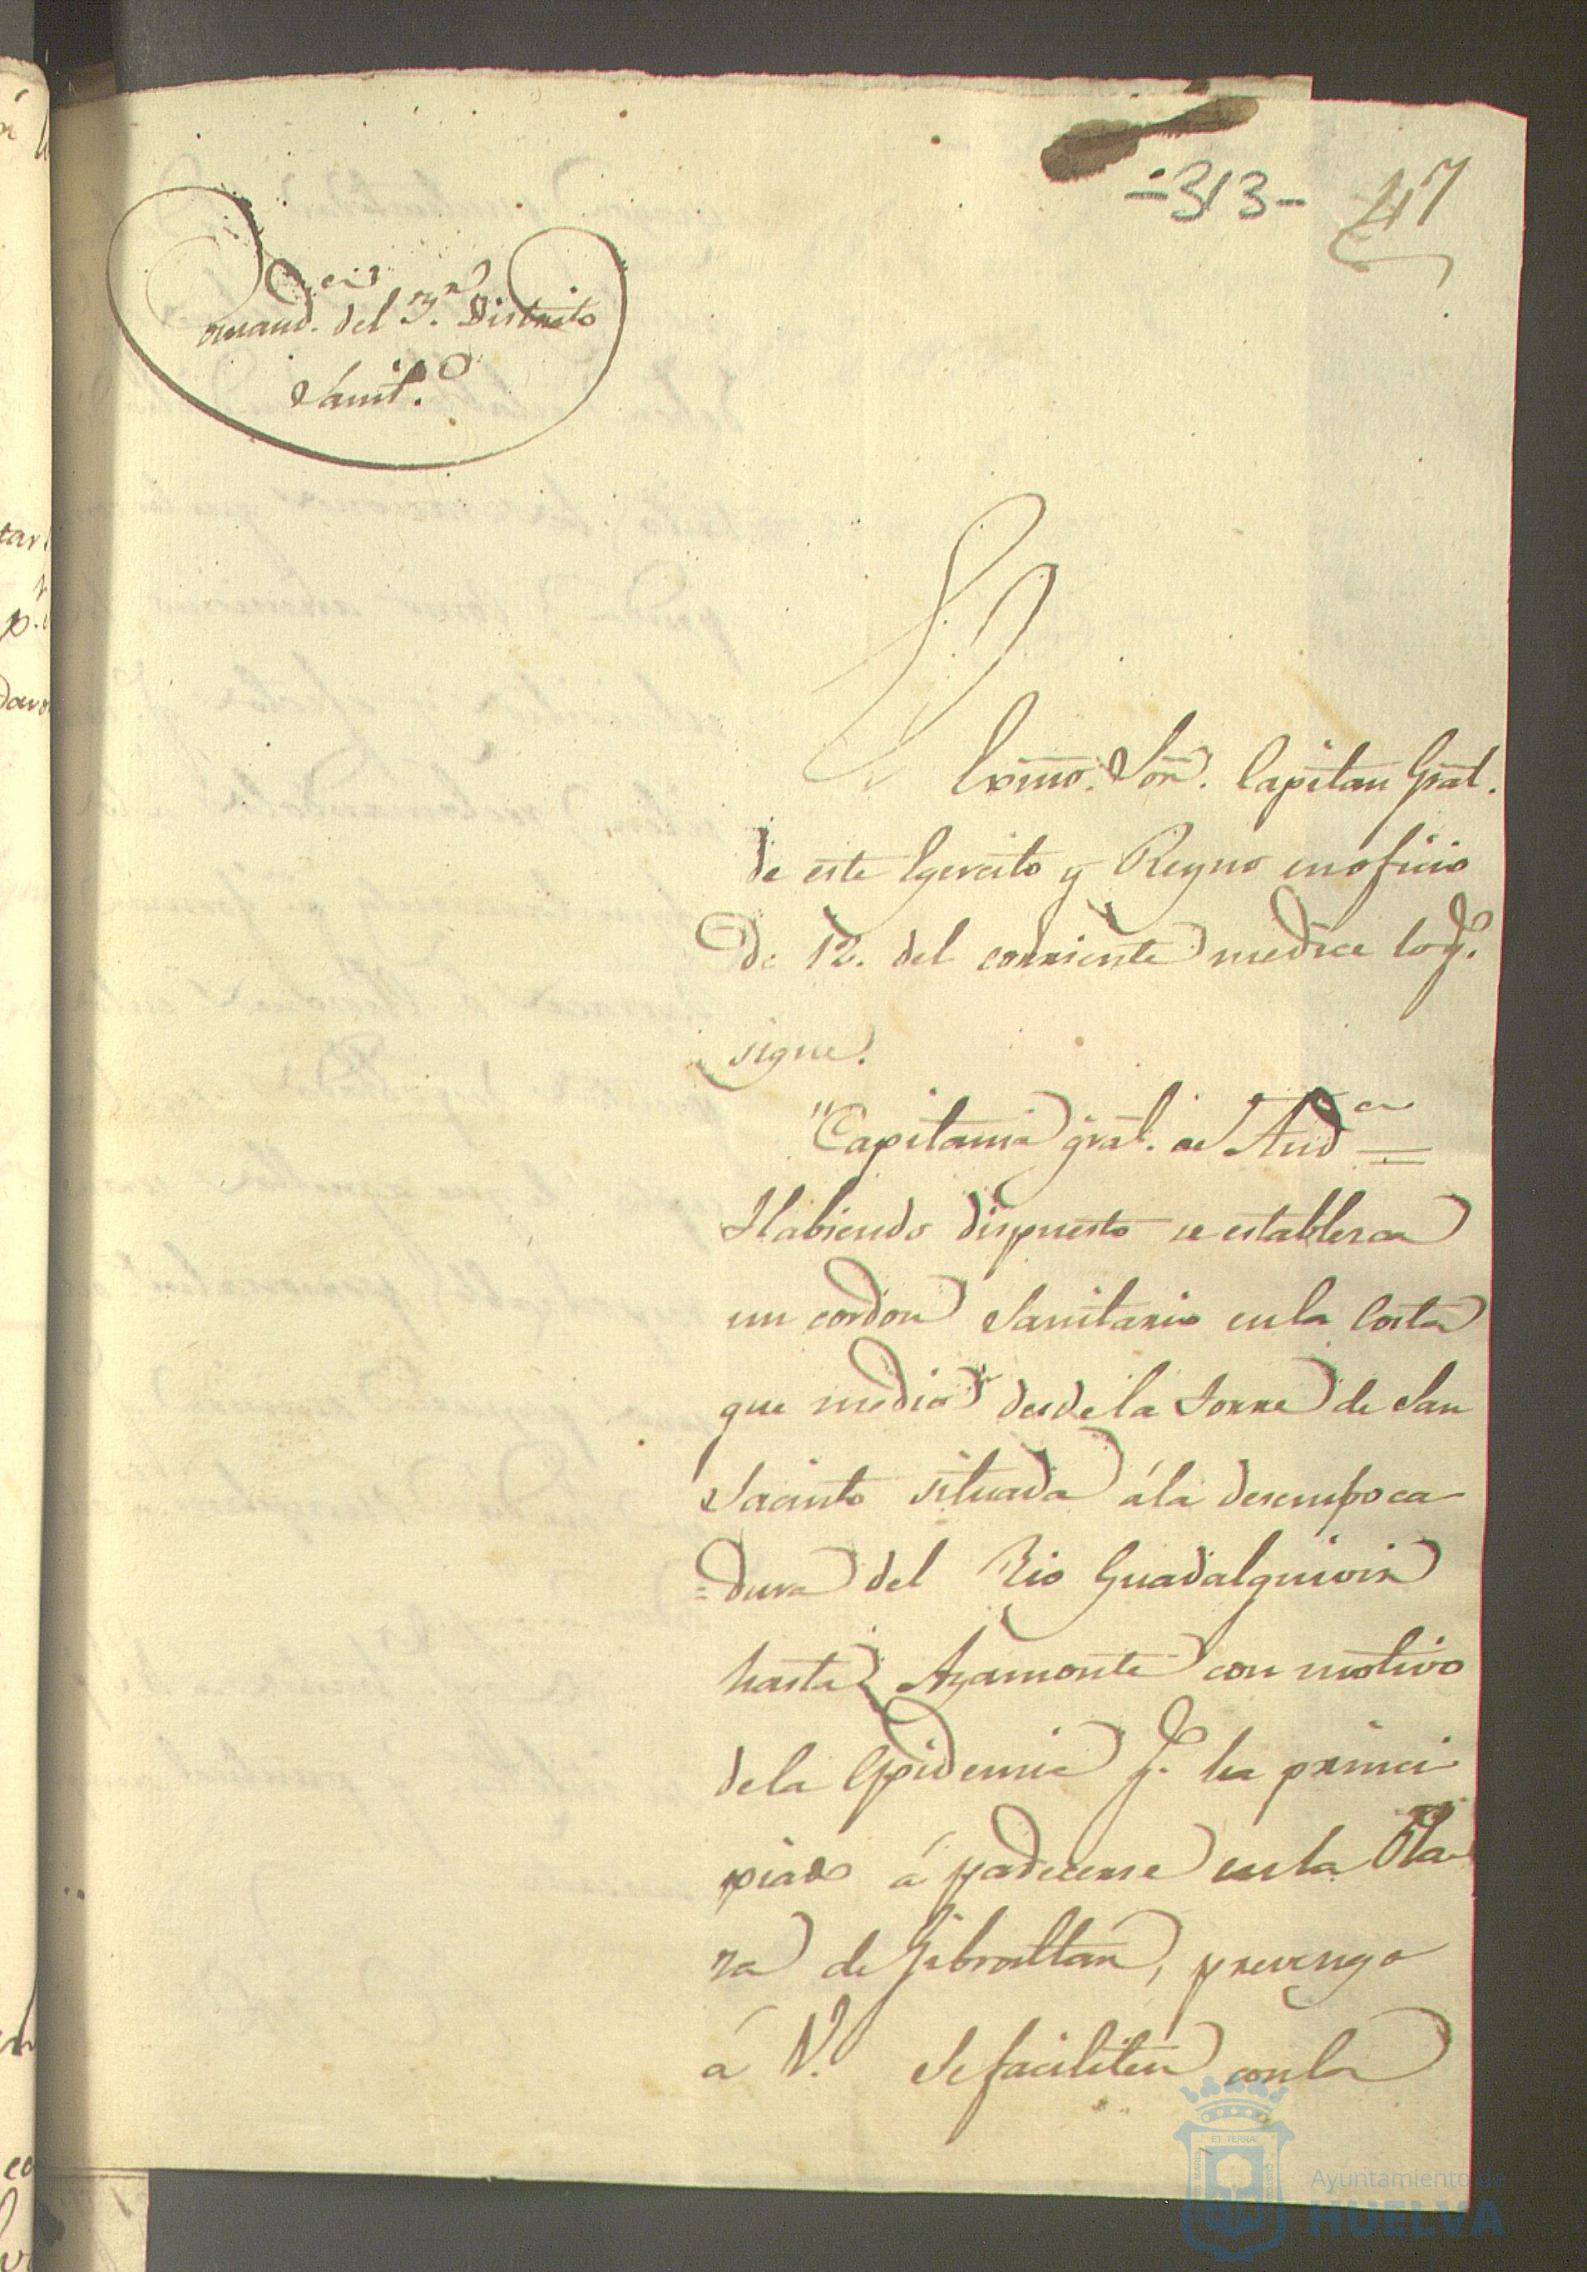 -313- 47
Comand.cia del 3.er Distrito
Sanit.o
El
Exmo. Sor. Capitan Gral.
de este Egercito y Reyno en oficio
de 12. del corriente me dice lo q.e
sigue.
"Capitania gral. de And.a =
Habiendo dispuesto se establesca
un cordon Sanitario en la Costa
que media desde la Torre de San
Jacinto situada á la desempoca
=dura del Rio Guadalquivir
hasta Ayamonte con motivo
de la Epidemia q.e ha princi
piado á padecerse en la Pla
za de Gibraltar, prevengo
á V. se faciliten con la
ET TERRA
Ayuntamiento de
HUELVA